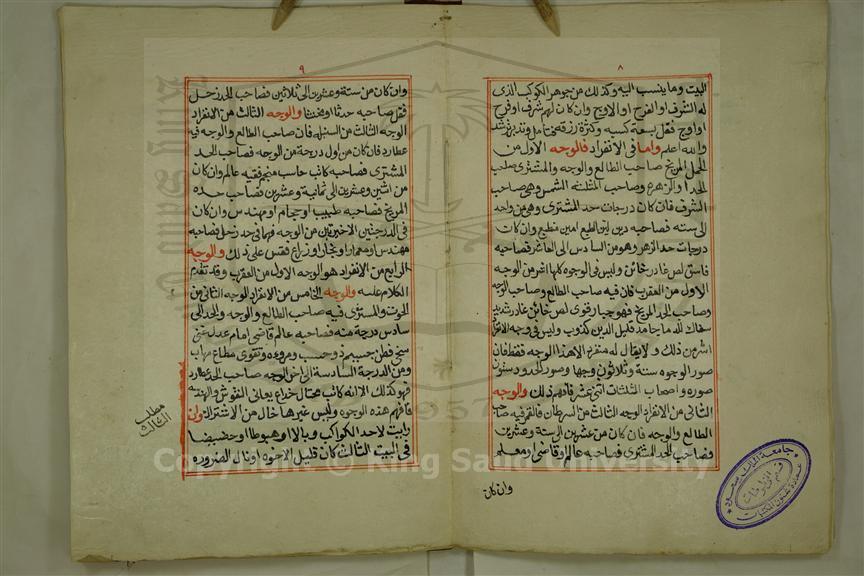 ٨
البيت وما ينسب اليه وكذلك من جوهر الكوكب الذى
له الشرف او الفرح او الاوج وان كان لهم شرف او فرح
او اوج فقل بسعة كسبه وكثرة رزقه فتامل وتدبر ترشد
والله اعلم واما فى الانفراد فالوجه الاول من
الحمل المريخ صاحب الطالع والوجه والمشترى صاحب
الحد والزهرة وصاحب المثلثه الشمس وهى صاحب
الشرف فان كان درجات حد المشترى وهى من واحد
الى سته فصاحبه دين امين فطيع وان كان
درجات حد الزهره وهو من السادس الى العاشر فصاحبه
فاسق لص غادر خائن وليس فى الوجوه كلها اشر من الوجه
الاول من العقرب فان فيه صاحب الطالع وصاحب الوجه
وصاحب الحد المريخ فهو جبار قوى لص خائن غادر شديد
سفاك للدماء جامد قليل الدين كذوب وليس فى وجه
اشر من ذلك ولا يقال له منفرد الا هذا الوجه فقط فان
صور الوجوه ستة وثلاثون وجها وصور
صوره واصحاب المثلثات اثنى عشر فافهم ذلك والوجه
الثانى من الانفراد الوجه الثالث من السرطان فالقمر فيه صاحب
الطالع والوجه فان كان من عشرين الى ستة وعشرين
فصاحب الحد المشترى فصاحبه عالم وقاضى او معلم
وان كان
جامعة الملك سعود
قسم المخطوطات
عمادة شئون المكتبات
٩
وان كان من ستة وعشرين الى ثلاثين فصاحب الحد زحل
فقل صاحبه حدثا او مخنثا والوجه الثالث من الانفراد
الوجه الثالث من السنبله فان صاحب الطالع والوجه فيه
عطارد فان كان من اول درجة من الوجه فصاحب الحد
المشترى فصاحبه كاتب حاسب منجم فقيه عالم وان كان
من اثنين وعشرين الى ثمانية وعشرين فصاحب حده
المريخ فصاحبه طبيب او حجام او مهندس وان كان
فى الدرجتين الاخيرتين من الوجه فهما فى حد زحل فصاحبه
مهندس او معمار او نجار او زراع فقس على ذلك والوجه
الرابع من الانفراد هو الوجه الاول من العقرب وقد تقدم
الكلام عليه والوجه الخامس من الانفراد الوجه الثانى من
الحوت والمشترى فيه صاحب الطالع والوجه والحد الى
سادس درجة منه فصاحبه عالم قاضى امام عدل
سخى فطن جسيم ذو حسب ومروءه وتقوى مطاع مهاب
ومن الدرجة السادسة الى اخر الوجه صاحب الحد عطارد
فهو كذلك الا انه كاتب محتال خداع يعانى النقوش والهندسه
فافهم هذه الوجوه وليس غيرها خال من الاشتراك وان
رايت لاحد الكواكب وبالا او هبوطا او حضيضا
فى البيت الثالث كان قليل الاخوه او نال الضروره
مطلب
الثالث
1957
Copyright © King Saud University